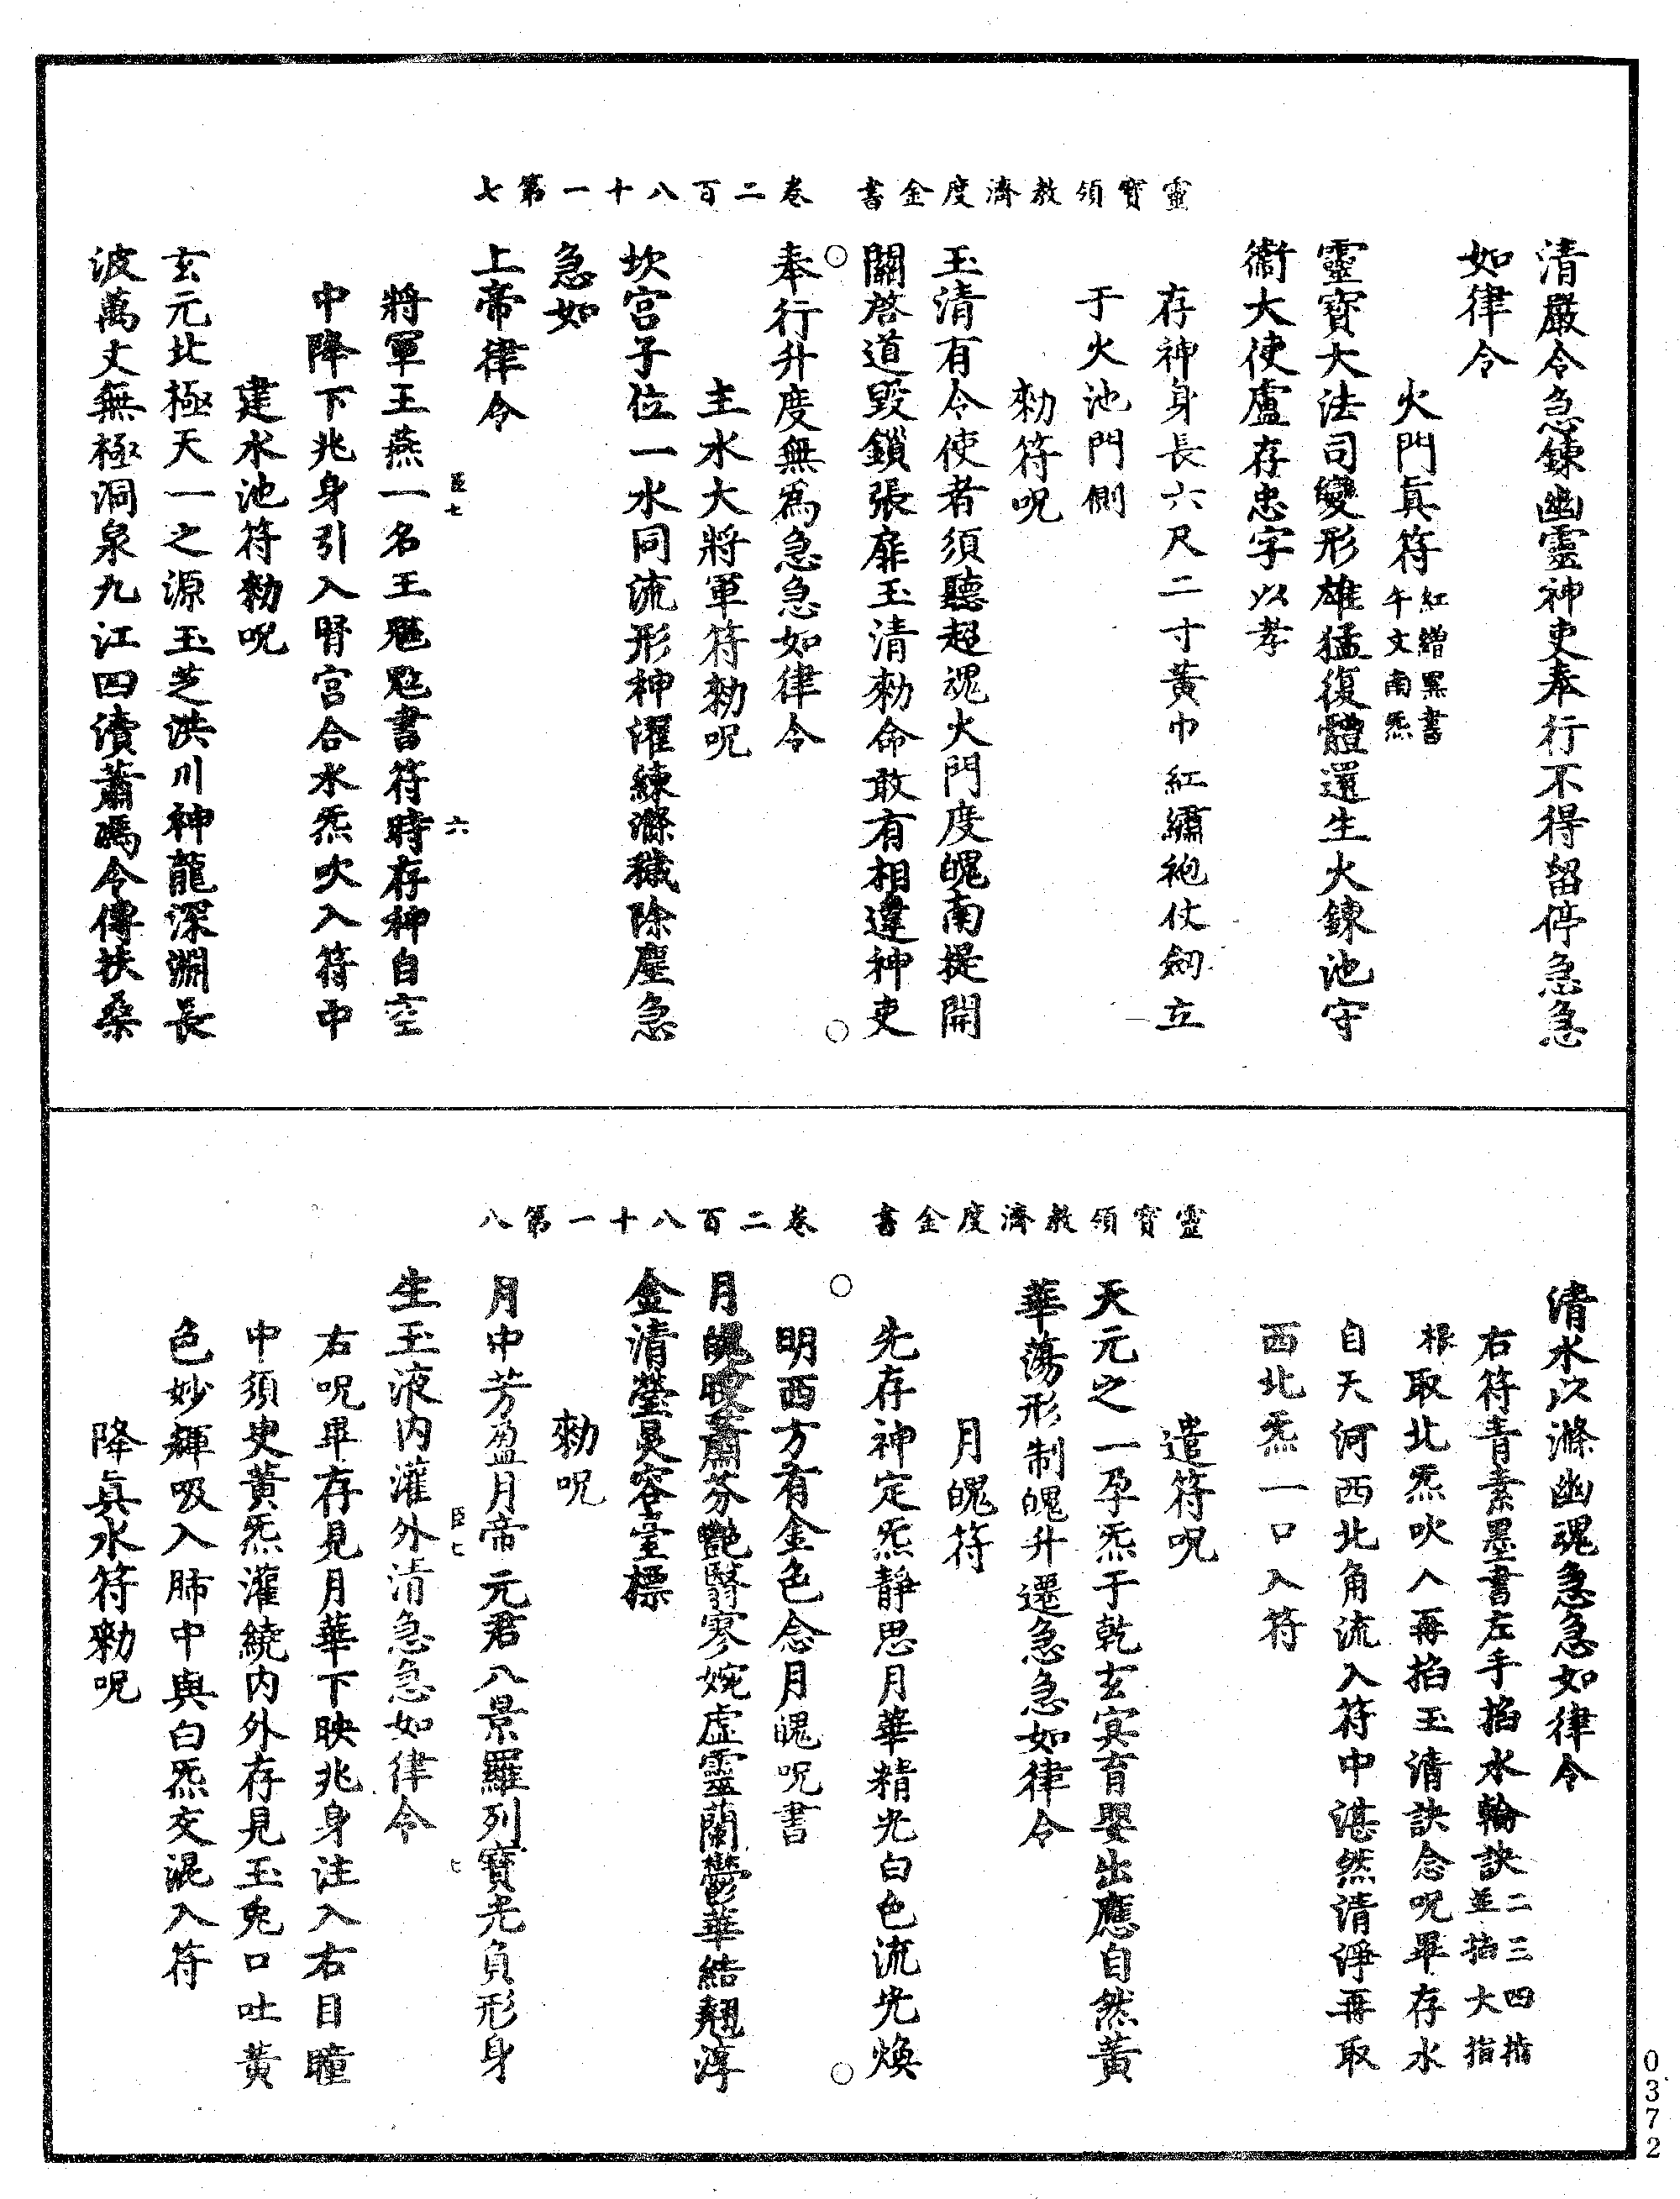 靈寶領教濟度金書　卷二百八十一第七
清嚴令急鍊幽靈神吏奉行不得留停急急
如律令
火門真符紅繒黑書午文南炁
靈寶大法司變形雄猛復體還生火鍊池守
衛大使盧存忠字以孝
存神身長六尺二寸黃巾紅繡袍仗劒立
于火池門側
勑符呪
玉清有令使者須聽超魂火門度魄南提開
關啓道毀鎖張扉玉清勑命敢有相違神吏
奉行升度無爲急急如律令
主水大將軍符勑呪
坎宮子位一水同流形神濯練滌穢除塵急
急如
上帝律令
臣七
六
將軍王燕一名王魋魋書符時存神自空
中降下兆身引入腎宮合水炁吹入符中
建水池符勑呪
玄元北極天一之源玉芝洪川神龍深淵長
波萬丈無極洞泉九江四瀆蕭馮令傳扶桑
靈寶領教濟度金書　卷二百八十一第八
清水以滌幽魂急急如律令
右符青素墨書左手掐水輪訣二三四指並掐大指
根取北炁吹入再掐玉清訣念呪畢存水
自天河西北角流入符中湛然清淨再取
西北炁一口入符
遣符呪
天元之一孕炁于乾玄㝠育嬰出應自然黃
華蕩形制魄升遷急急如律令
月魄符
先存神定炁靜思月華精光白色流光煥
明西方有金色念月魄呪書
月魄曖蕭芬豔翳寥婉虛靈蘭鬱華結翹淳
金清瑩炅容臺標
勑呪
月中芳盈月帝元君八景羅列寶光負形身
生玉液內灌外清急急如律令
臣七
七
右呪畢存見月華下映兆身注入右目瞳
中須臾黃炁灌繞內外存見玉兔口吐黃
色妙輝吸入肺中與白炁交混入符
降真水符勑呪
0372